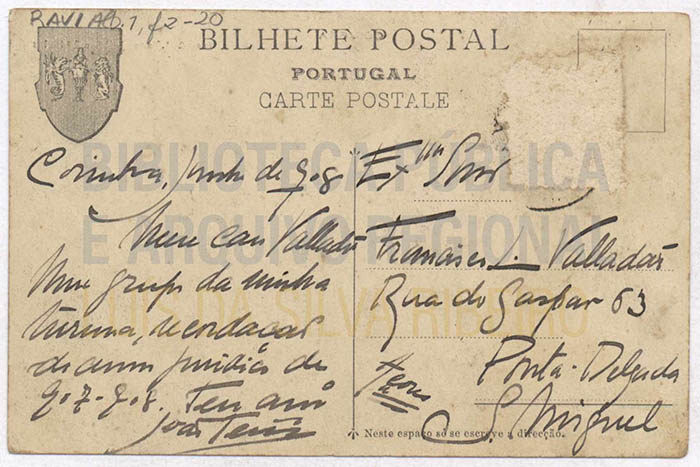 RAVIAB.1,f2-20
BILHETE POSTAL
PORTUGAL
CARTE POSTALE
BIBLIOTECA PÚBLICA
E ARQUIVO REGIONAL
LUÍS DA SILVA RIBEIRO
Coimbra, Junho de 908
Meu caro Valladão
Um grupo da minha
turma, recordação
do anno jurídico de
907-908. Teu am
João
Exmo Snr
Francisco L. Valladão
Rua do Gaspar 63
Ponta-Delgada
S. Miguel
Açores
Neste espaço só se escreve a direcção.